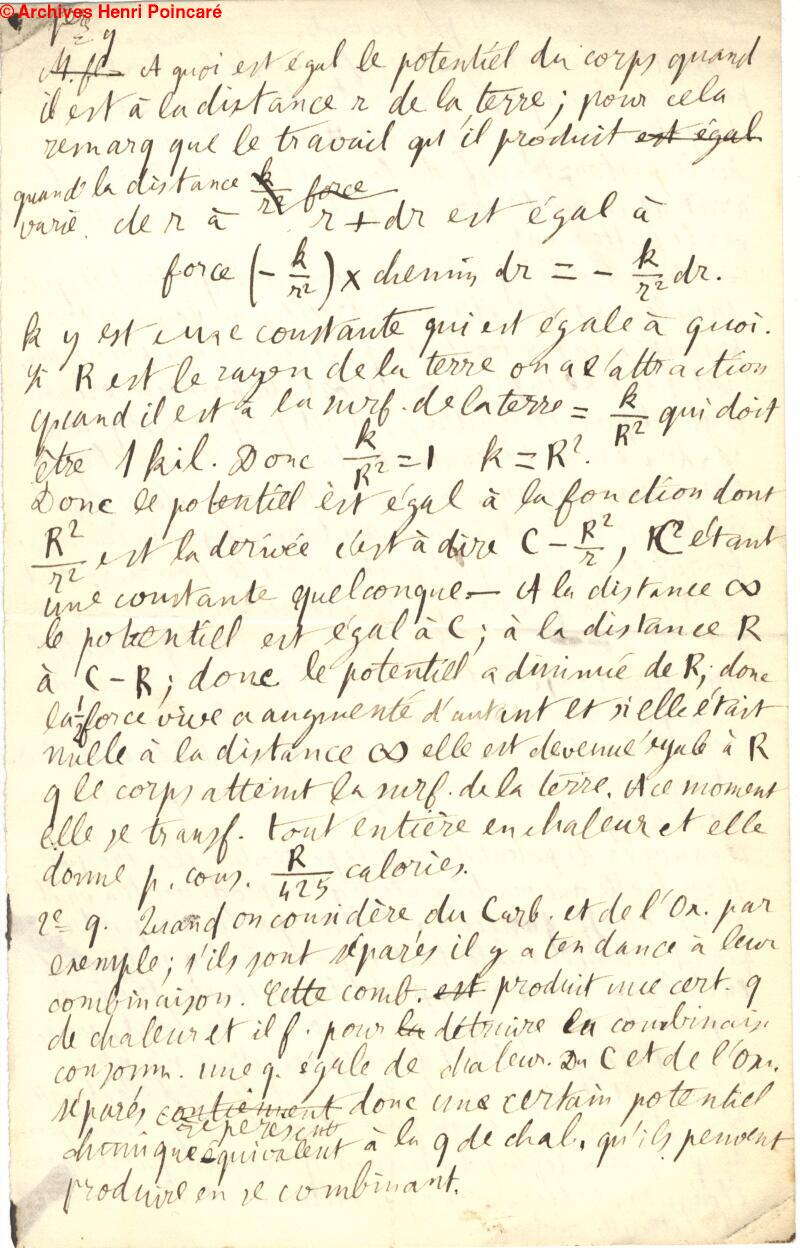 © Archives Henri Poincaré
1ère q
M. fl. A quoi est égal le potentiel du corps quand
il est à la distance r de la terre ; pour cela
remarq que le travail qu'il produit est égal
quand la distance k/r² force
varie de r à r + dr est égal à
force (- k/r²) x chemin dr = - k/r² dr.
k y est une constante qui est égale à quoi.
Si R est le rayon de la terre on a l'attraction
quand il est à la surf. de la terre = k/R² qui doit
être 1 kil. Donc k/R² = 1 k = R².
Donc le potentiel est égal à la fonction dont
R²/r² est la derivée c'est à dire C - R²/r, C étant
une constante quelconque — A la distance ∞
le potentiel est égal à C ; à la distance R
à C - R ; donc le potentiel a diminué de R ; donc
la ½ force vive a augmenté d'autant et si elle était
nulle à la distance ∞ elle est devenue égale à R
q le corps atteint la surf. de la terre. A ce moment
elle se transf. tout entière en chaleur et elle
donne p. cons. R/425 calories.
2e q. Quand on considère du Carb. et de l'Ox. par
exemple ; s'ils sont séparés il y a tendance à leur
combinaison. Cette comb. est produit une cert. q
de chaleur et il f. pour la détruire la combinais.
consomm. une q. egale de chaleur. Du C et de l'Ox.
séparés contiennent donc une certain potentiel
représent
chimique équivalent à la q de chal. qu'ils peuvent
produire en se combinant.